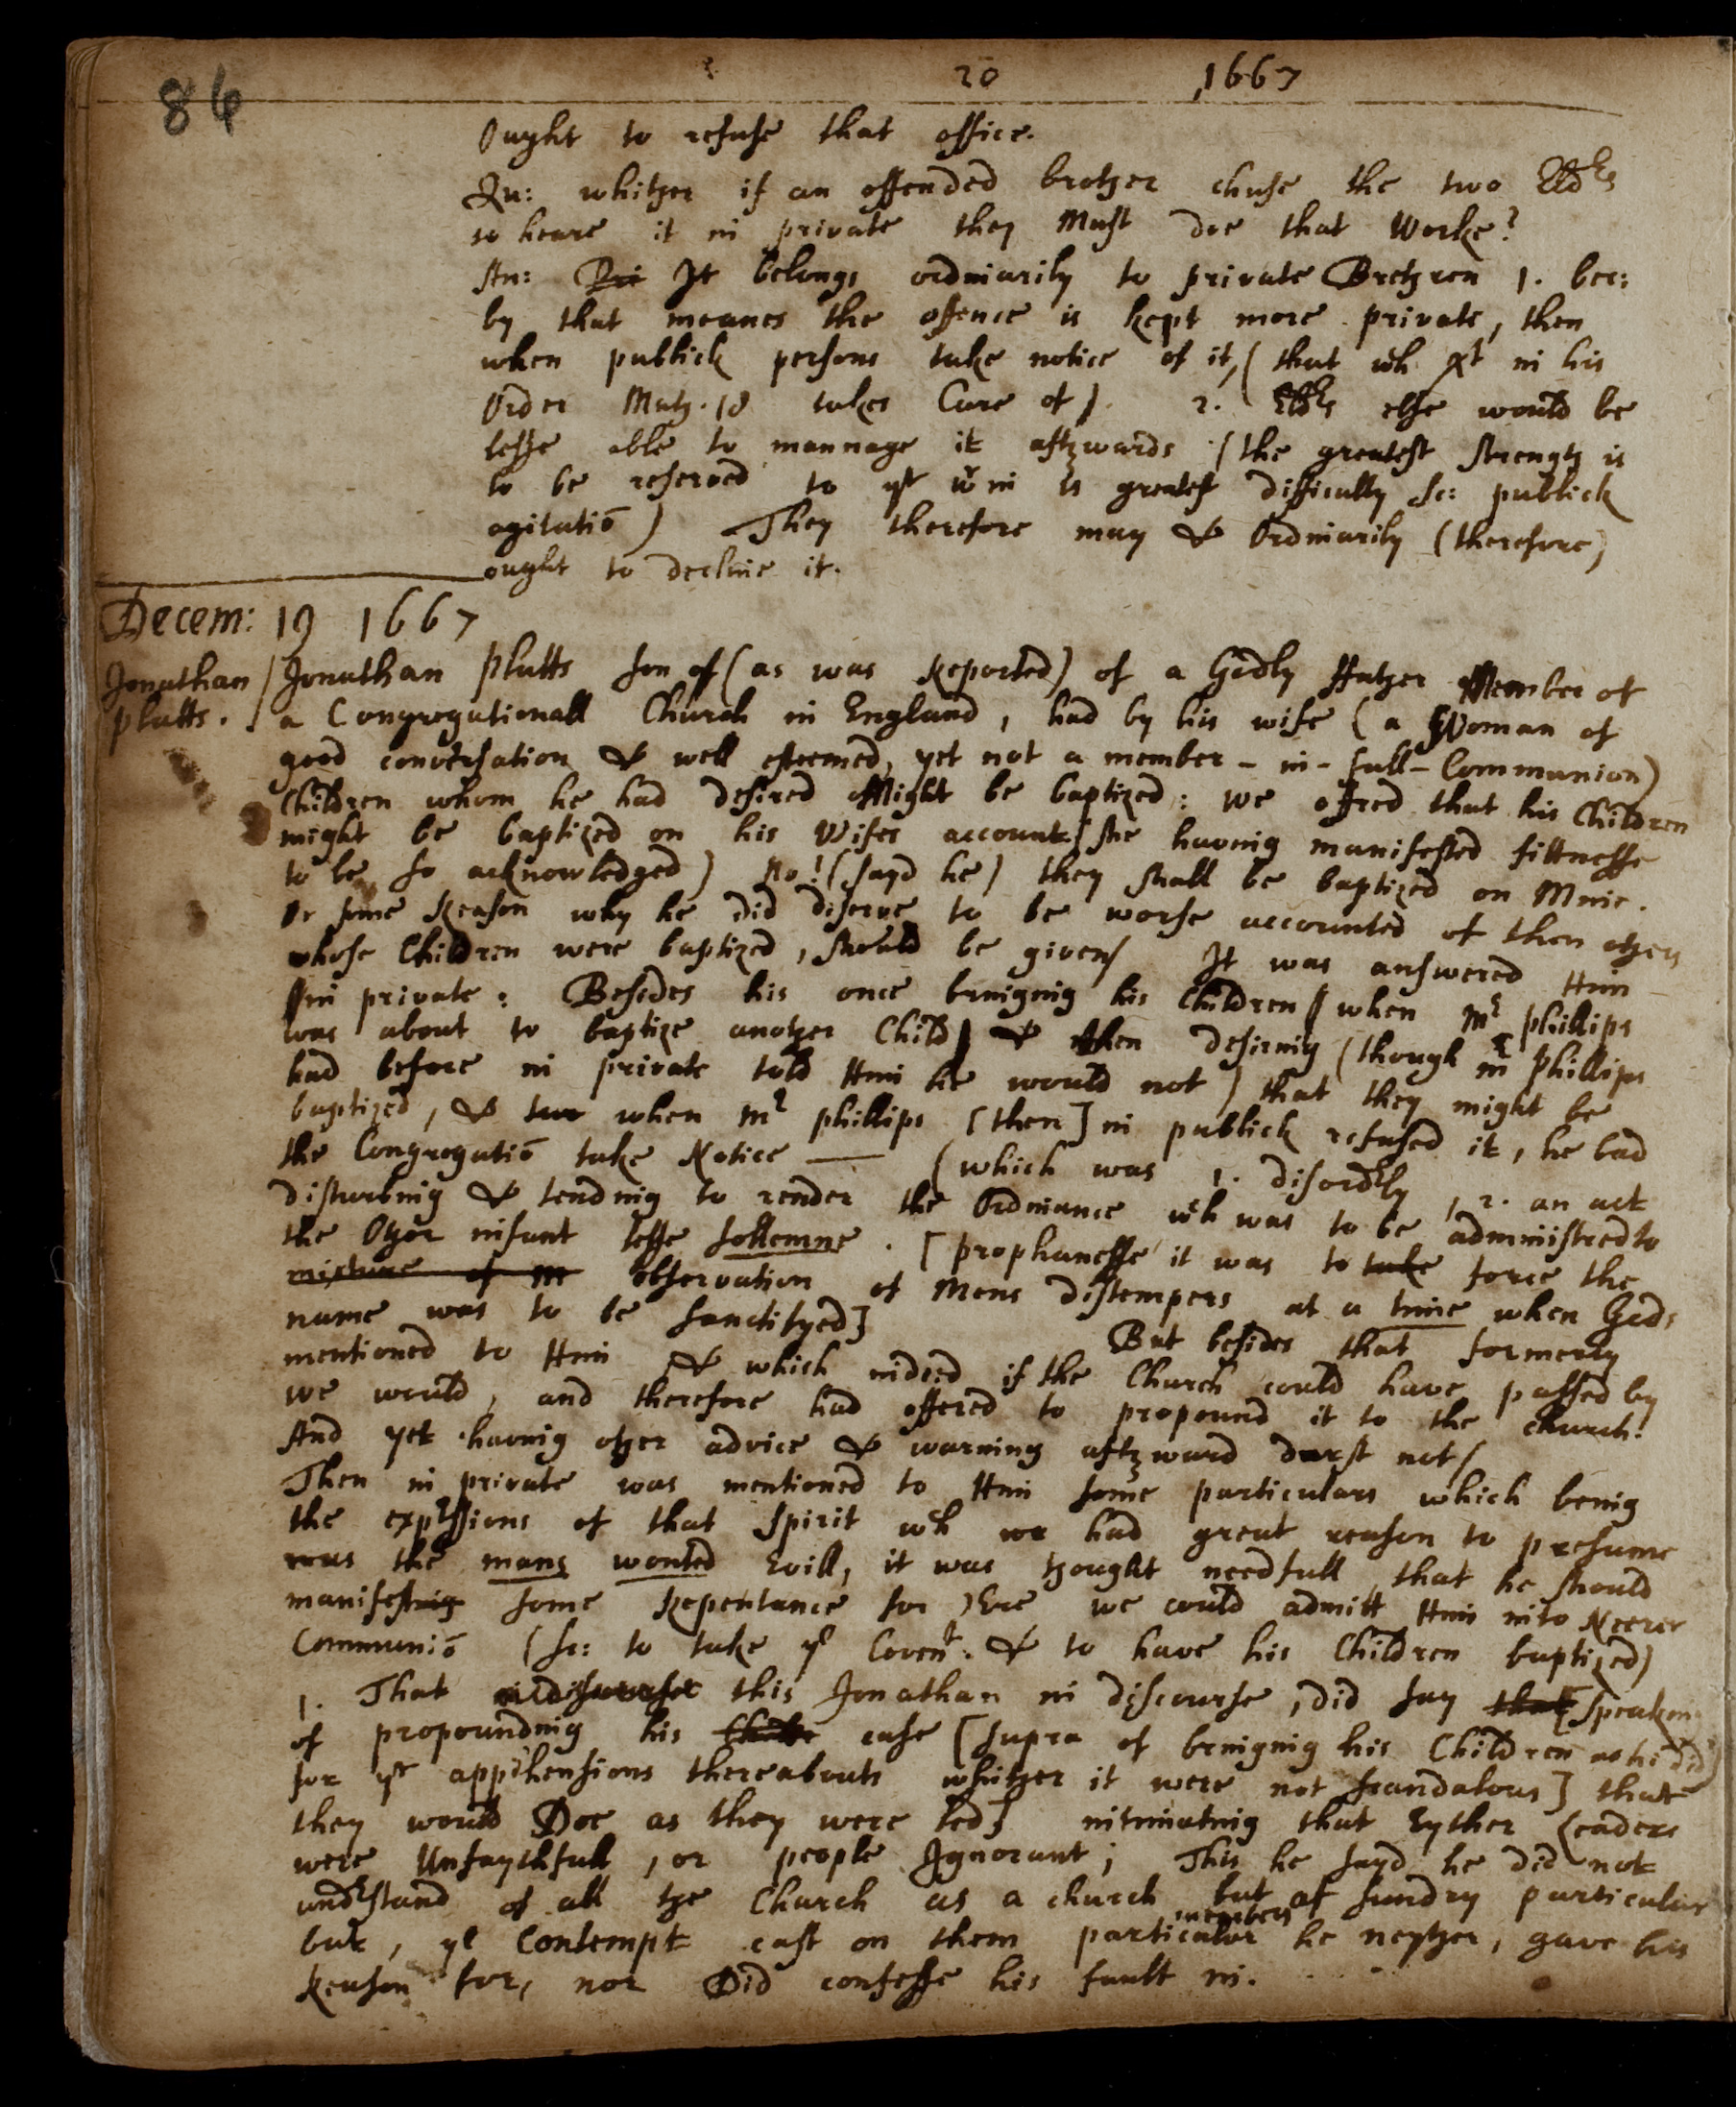 86
20 1667
Ought to refuse that office.
Qu: whither if an offended brother chuse the two Eldrs
to heare it in private they Must doe that Worke?
An: It belongs ordinarily to private Brethren 1. bec:
by that meanes the offence is kept more private, then
when publick persons take notice of it, (that wch Xt in his
Order Math. 18 takes Care of). 2. Eldrs else would be
lesse able to mannage it afterwards (the greatest strength is
to be reserved to yt wrin is greatest difficulty sc: publick
agitatiō) They therefore may & Ordinarily (therefore)
ought to decline it.
Decem: 19 1667
Jonathan
platts.
Jonathan Platts son of (as was Reported) of a Godly ffather Member of
a Congregationall Church in England, had by his wife (a Woman of
good conversation & well esteemed, yet not a member - in - full - Communion)
Children whom he had desired Might be baptized: we offred that his Children
might be baptized on his Wifes account (she having manifested fittnesse
to be so acknowledged) No! (sayd he) they shall be baptized on Mine.
Or some Reason why he did deserve to be worse accounted of then others
whose Children were baptized, should be given/ It was answered Him
in private: Besides his once bringing his Children (when Mr phillips
was about to baptize another Child) & then desiring (though mr Phillips
had before in private told Him he would not) that they might be
baptized, & when Mr phillips [then] in publick refused it, he bad
the Congregatiō take Notice — (which was 1. disordrly, 2. an act
disturbing & tending to render the Ordinance wch was to be administred to
the Other infant lesse sollemne. [prophanesse it was to take force the
mixture of m observation of Mens distempers at a time when Gods
name was to be sanctifyed] But besides that formerly
mentioned to Him, & which indeed if the Church could have passed by
we would, and therefore had offered to propound it to the church!
And yet having other advice & warning afterward durst not/
Then in private was mentioned to Him some particulars which being
the exprssions of that Spirit wch we had great reason to presume
was the mans wonted Evill, it was thought needfull that he should
manifesting some Repentance for Ere we could admitt Him into Neerer
Communiō (sc: to take ye Covent. & to have his Children baptized)
1. That this Jonathan in discourse, did say that [speaken
of propounding his case [supra of bringing his Children as he did
for yr apprhensions thereabouts whither it were not scandalous] that
they would Doe as they were led] intimating that Eyther Leaders
were Unfaythfull, or people Ignorant; This he sayd he did not
undrstand of all the Church as a church but of sundry particular
members
but, ye Contempt cast on them particular he neyther, gave his
Reason for, nor Did confesse his fault in.